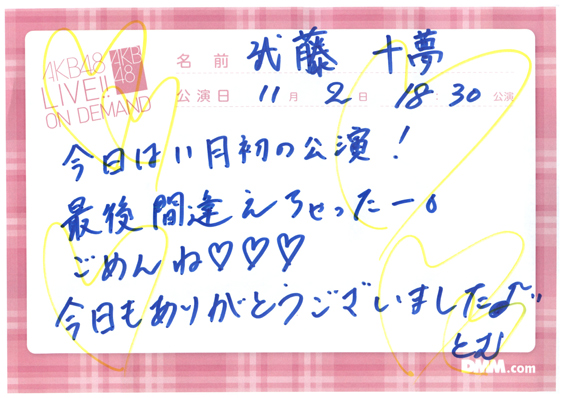 AKB48
LIVE!!
ON DEMAND
AKB
48
名前 武藤 十夢
公演日 11月 2日 18:30 公演
今日は11月初の公演!
最後間違えちゃったー。
ごめんね♡♡♡
今日もありがとうございました♪
とむ
DMM.com